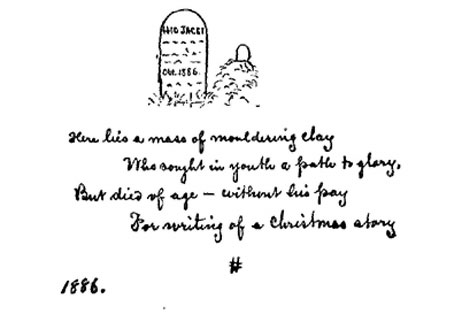 HIC JACET
Obt. 1886.
Here lies a mass of mouldering clay
Who sought in youth a path to glory,
But died of age – without his pay
For writing of a Christmas story
#
1886.